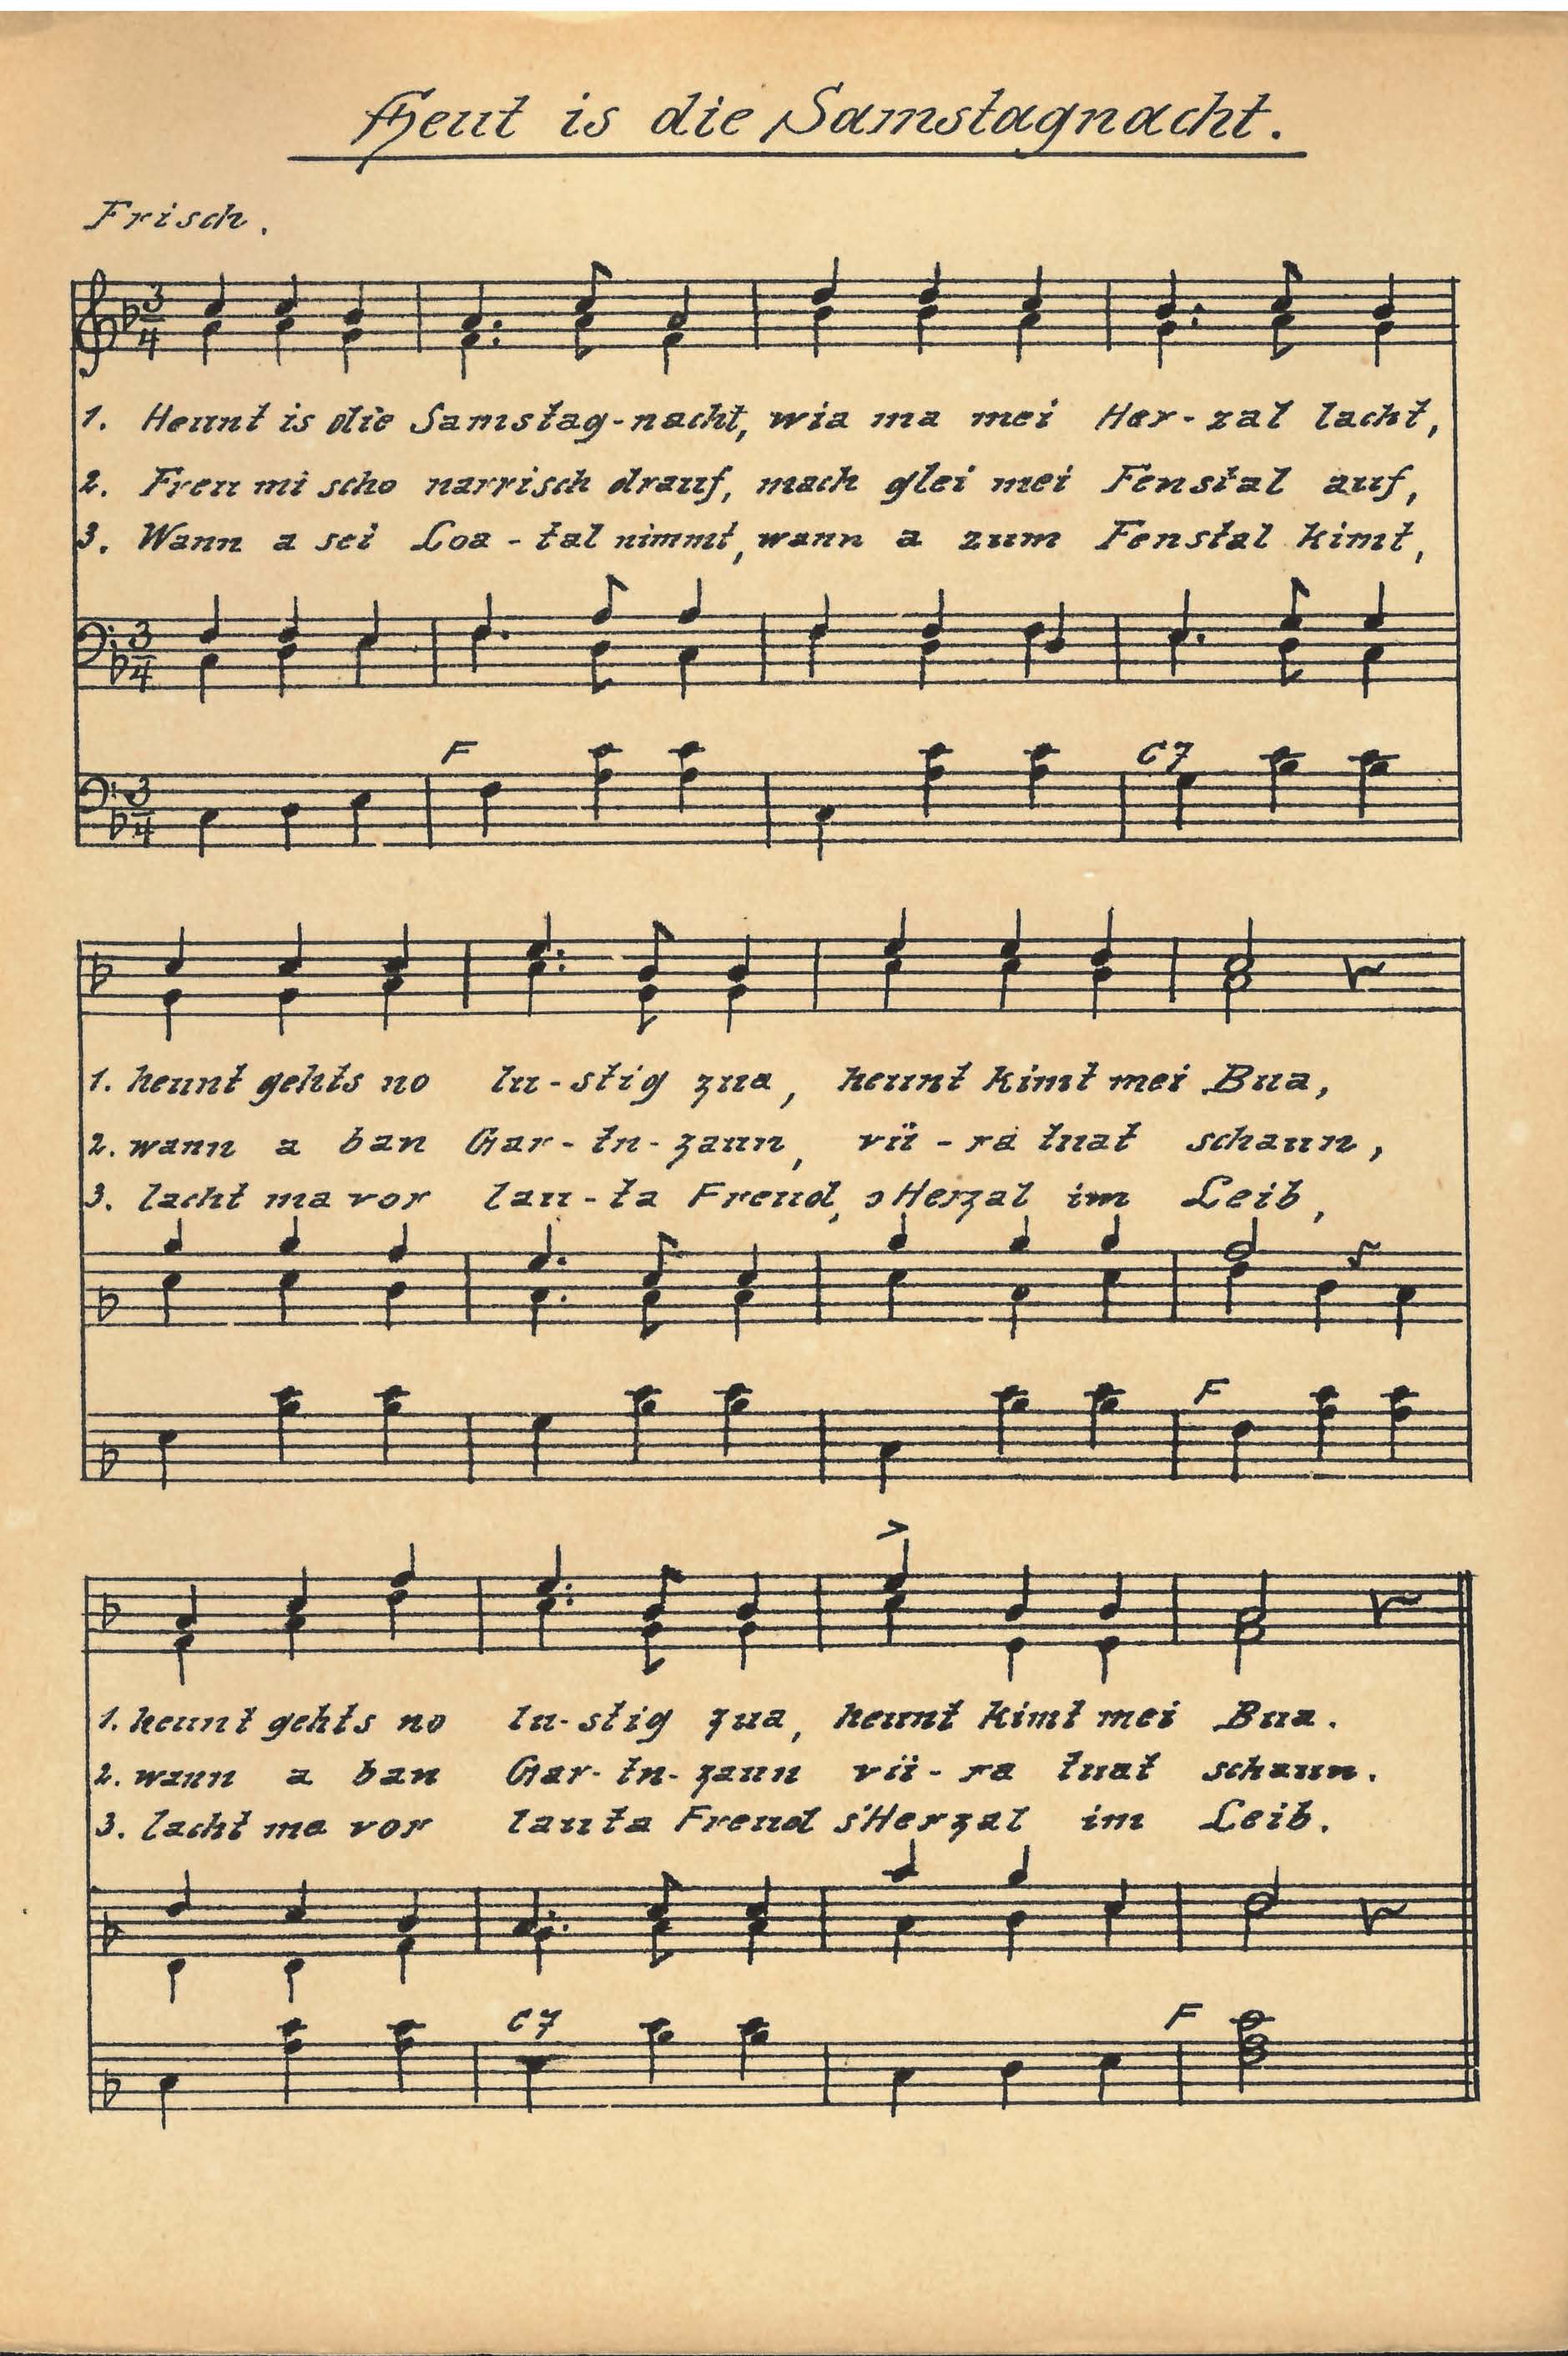 Heut is die Samstagnacht.
Frisch.
3
4
1. Heunt is die Samstag-nacht, wia ma mei Her-zal lacht,
2. Freu mi scho narrisch drauf, mach glei mei Fenstal auf,
3. Wann a sei Loa-tal nimmt, wann a zum Fenstal kimt,
3
4
F C7
3
4
1. heunt gehts no lu-stig zua, heunt kimt mei Bua,
2. wann a ban Gar-tn-zaun, vü-ra tuat schaun,
3. lacht ma vor lau-ta Freud, sHerzal im Leib,
F
>
1. heunt gehts no lu-stig zua, heunt kimt mei Bua.
2. wann a ban Gar-tn-zaun vü-ra tuat schaun.
3. lacht ma vor lauta Freud s'Herzal im Leib.
C7 F